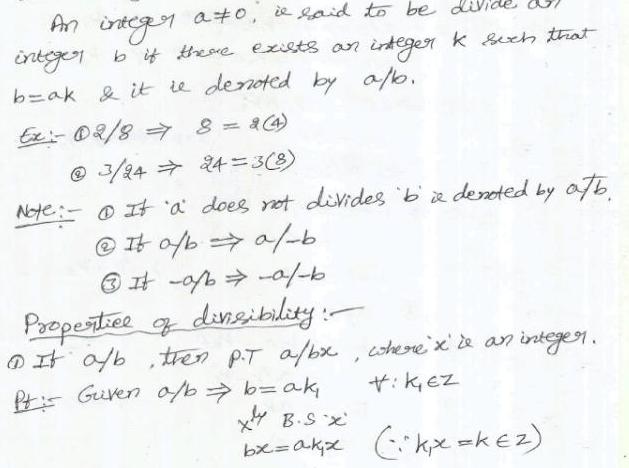 An integer a≠0, is said to be divide an
integer b if there exists an integer k such that
b=ak & it is denoted by a/b.
Ex:- ① 2/8 ⇒ 8 = 2(4)
② 3/24 ⇒ 24 = 3(8)
Note:- ① If 'a' does not divides 'b' is denoted by a∤b.
② If a/b ⇒ a/-b
③ If -a/b ⇒ -a/-b
Properties of divisibility:-
① If a/b, then P.T a/bx, where 'x' is an integer.
Pf:- Given a/b ⇒ b=ak₁ ∀: k₁∈Z
xly B.S 'x'
bx=ak₁x (∵ k₁x = k ∈ Z)